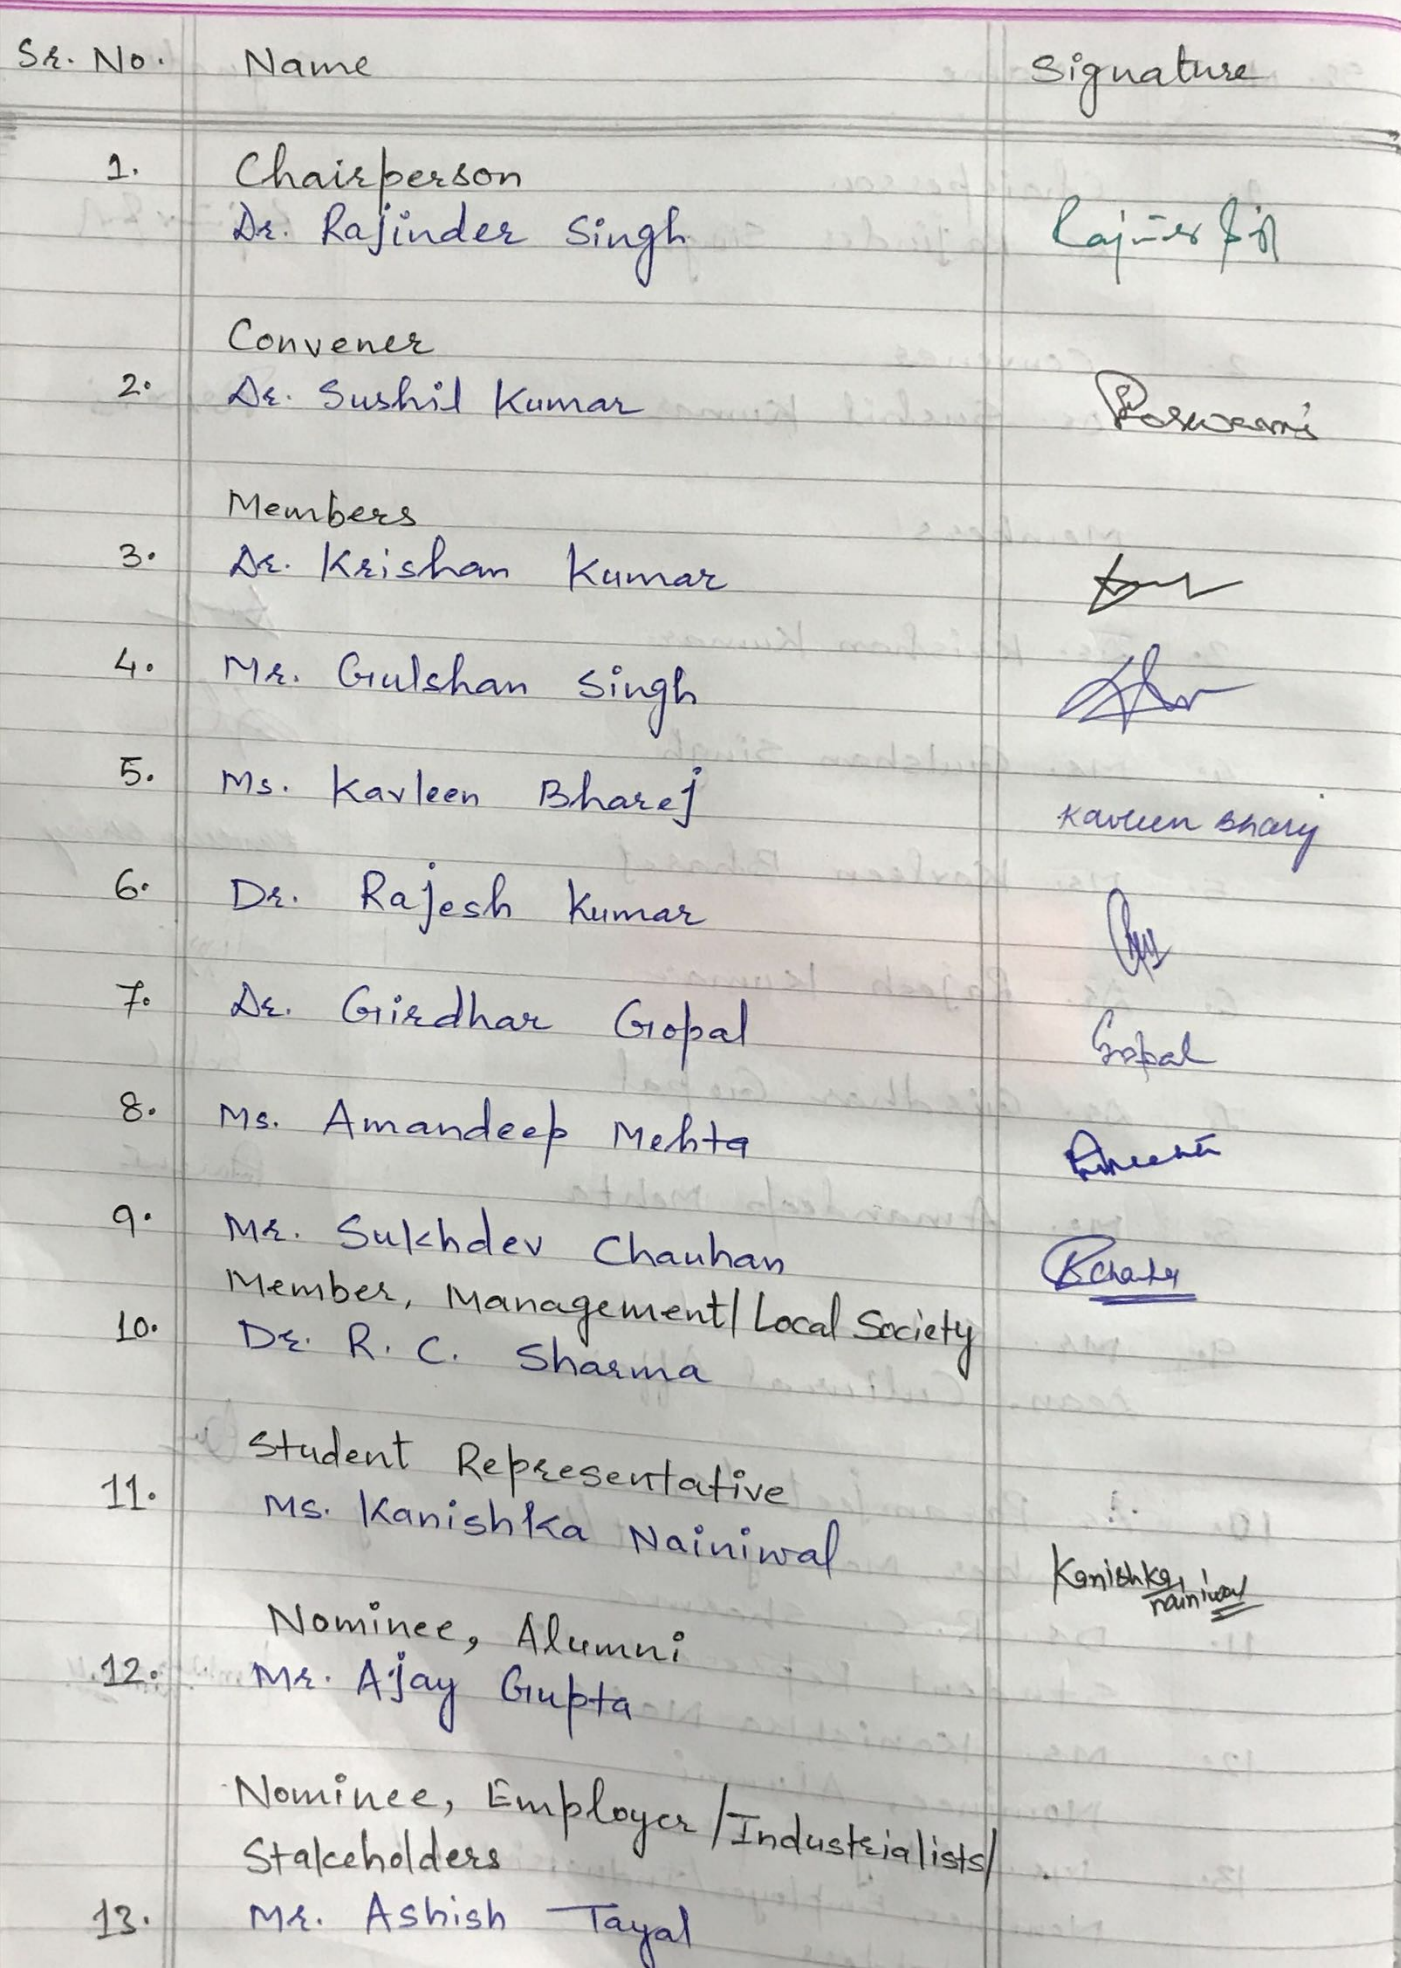 Sr. No. Name Signature
1. Chairperson
Dr. Rajinder Singh
Convener
2. Dr. Sushil Kumar
Members
3. Dr. Krishan Kumar
4. Mr. Gulshan Singh
5. Ms. Kavleen Bharej Kavleen Bharej
6. Dr. Rajesh Kumar
7. Dr. Girdhar Gopal Gopal
8. Ms. Amandeep Mehta
9. Mr. Sukhdev Chauhan
Member, Management/Local Society
10. Dr. R. C. Sharma
Student Representative
11. Ms. Kanishka Nainiwal Kanishka
nainiwal
Nominee, Alumni
12. Mr. Ajay Gupta
Nominee, Employer/Industrialists/
Stakeholders
13. Mr. Ashish Tayal